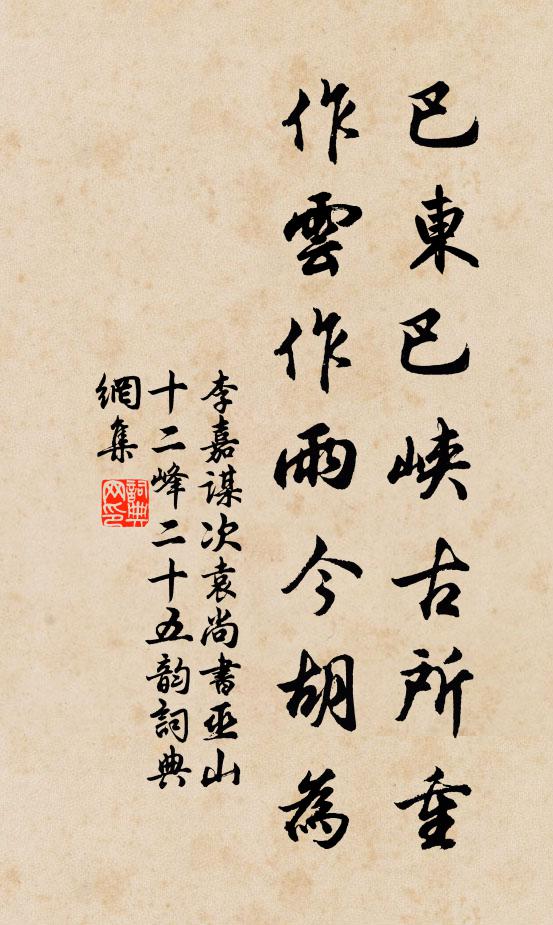 巴東巴峽古所重
作雲作雨今胡為
李嘉謀次袁尚書巫山
十二峰二十五韵詞典
網集
詞典網印